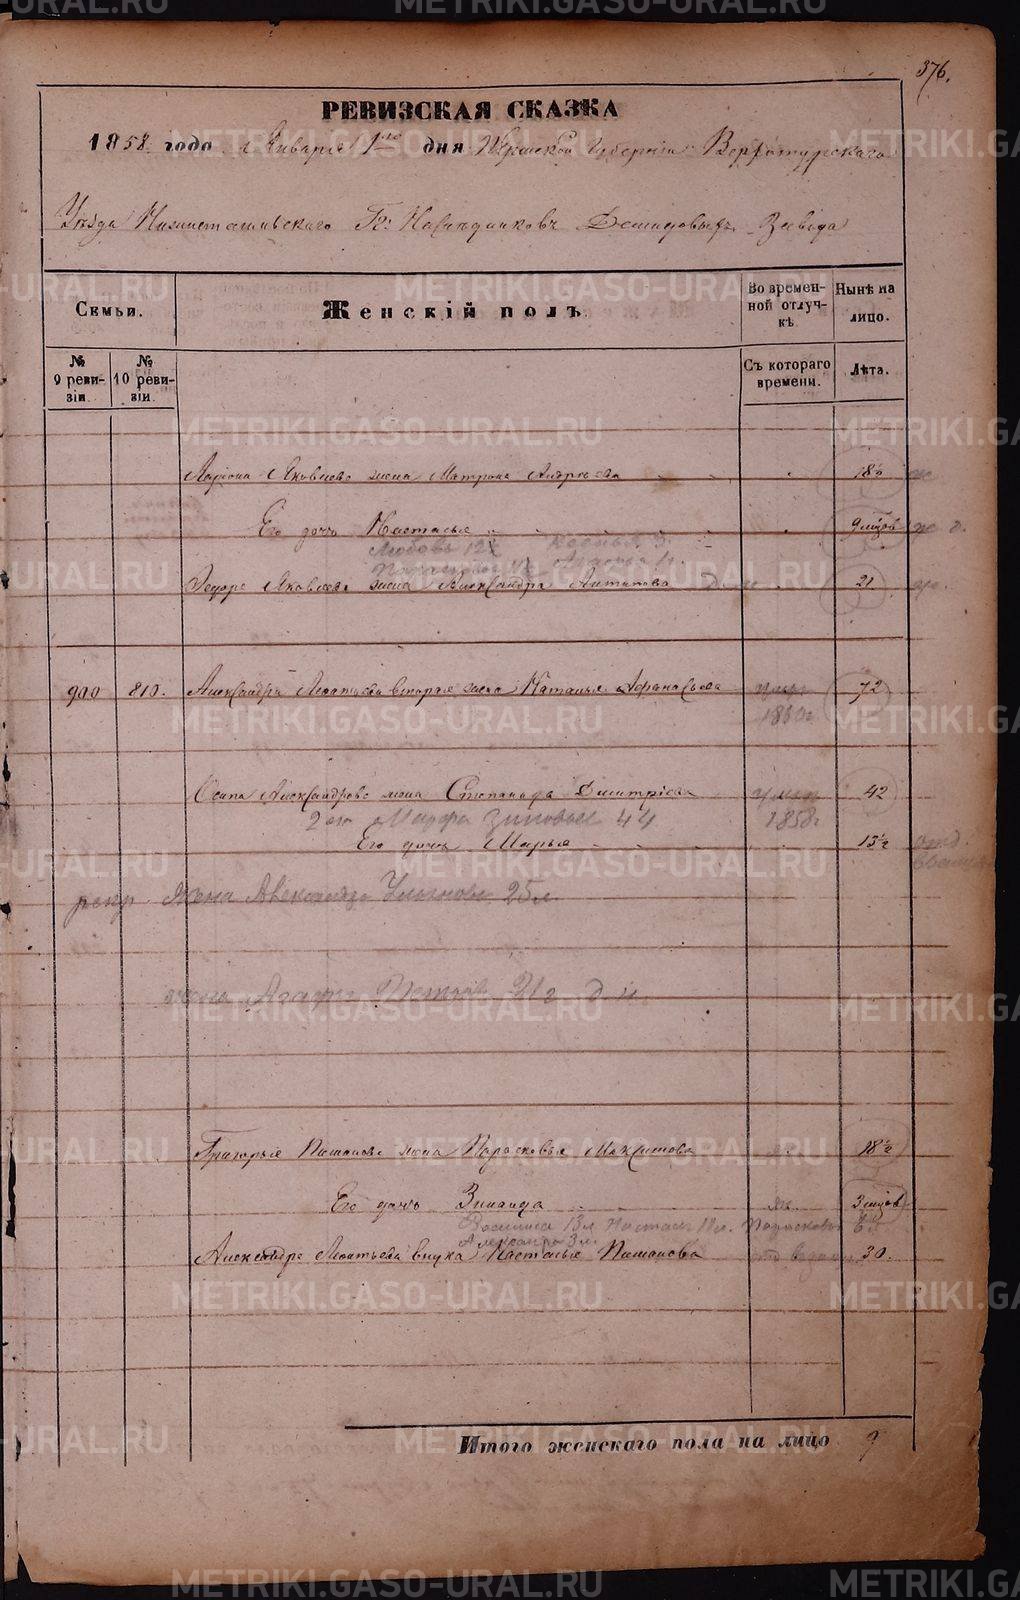 376.
РЕВИЗСКАЯ СКАЗКА
1858 года Января 1го дня Пермской Губерніи Верхотурскаго
Уѣзда Нижнетагильскаго Гг. Наслѣдниковъ Демидовыхъ Завода
Семьи. Женскій полъ. Во времен-ной отлуч-кѣ. Нынѣ на лицо.
№ 9 реви-зіи. № 10 реви-зіи. Съ котораго времени. Лѣта.
Ларіона Яковлева жена Матрона Андреева 18½
Его дочь Настасья 9 мѣцов
Любовь 12
Федора Яковлева жена Александра Антипова 21
900 810. Александра Леонтьева вторая жена Наталья Афанасьева умер 1860г 72
Осипа Александрова жена Степанида Дмитріева умер 1858г 42
2ая Марфа Зиновьев 44
Его дочь Марья 13½
рекр жена Александра 25 л.
жена Агафья Петров 21 г
Григорья Пимонова жена Парасковья Никитова 18½
Его дочь Зинаида 3 мѣцов
13 л. Настас 11 л. Парасковья
Александра 3 л.
Александра Леонтьева внука Настасья Пимонова 30.
Итого женскаго пола на лицо 9
METRIKI.GASO-URAL.RU